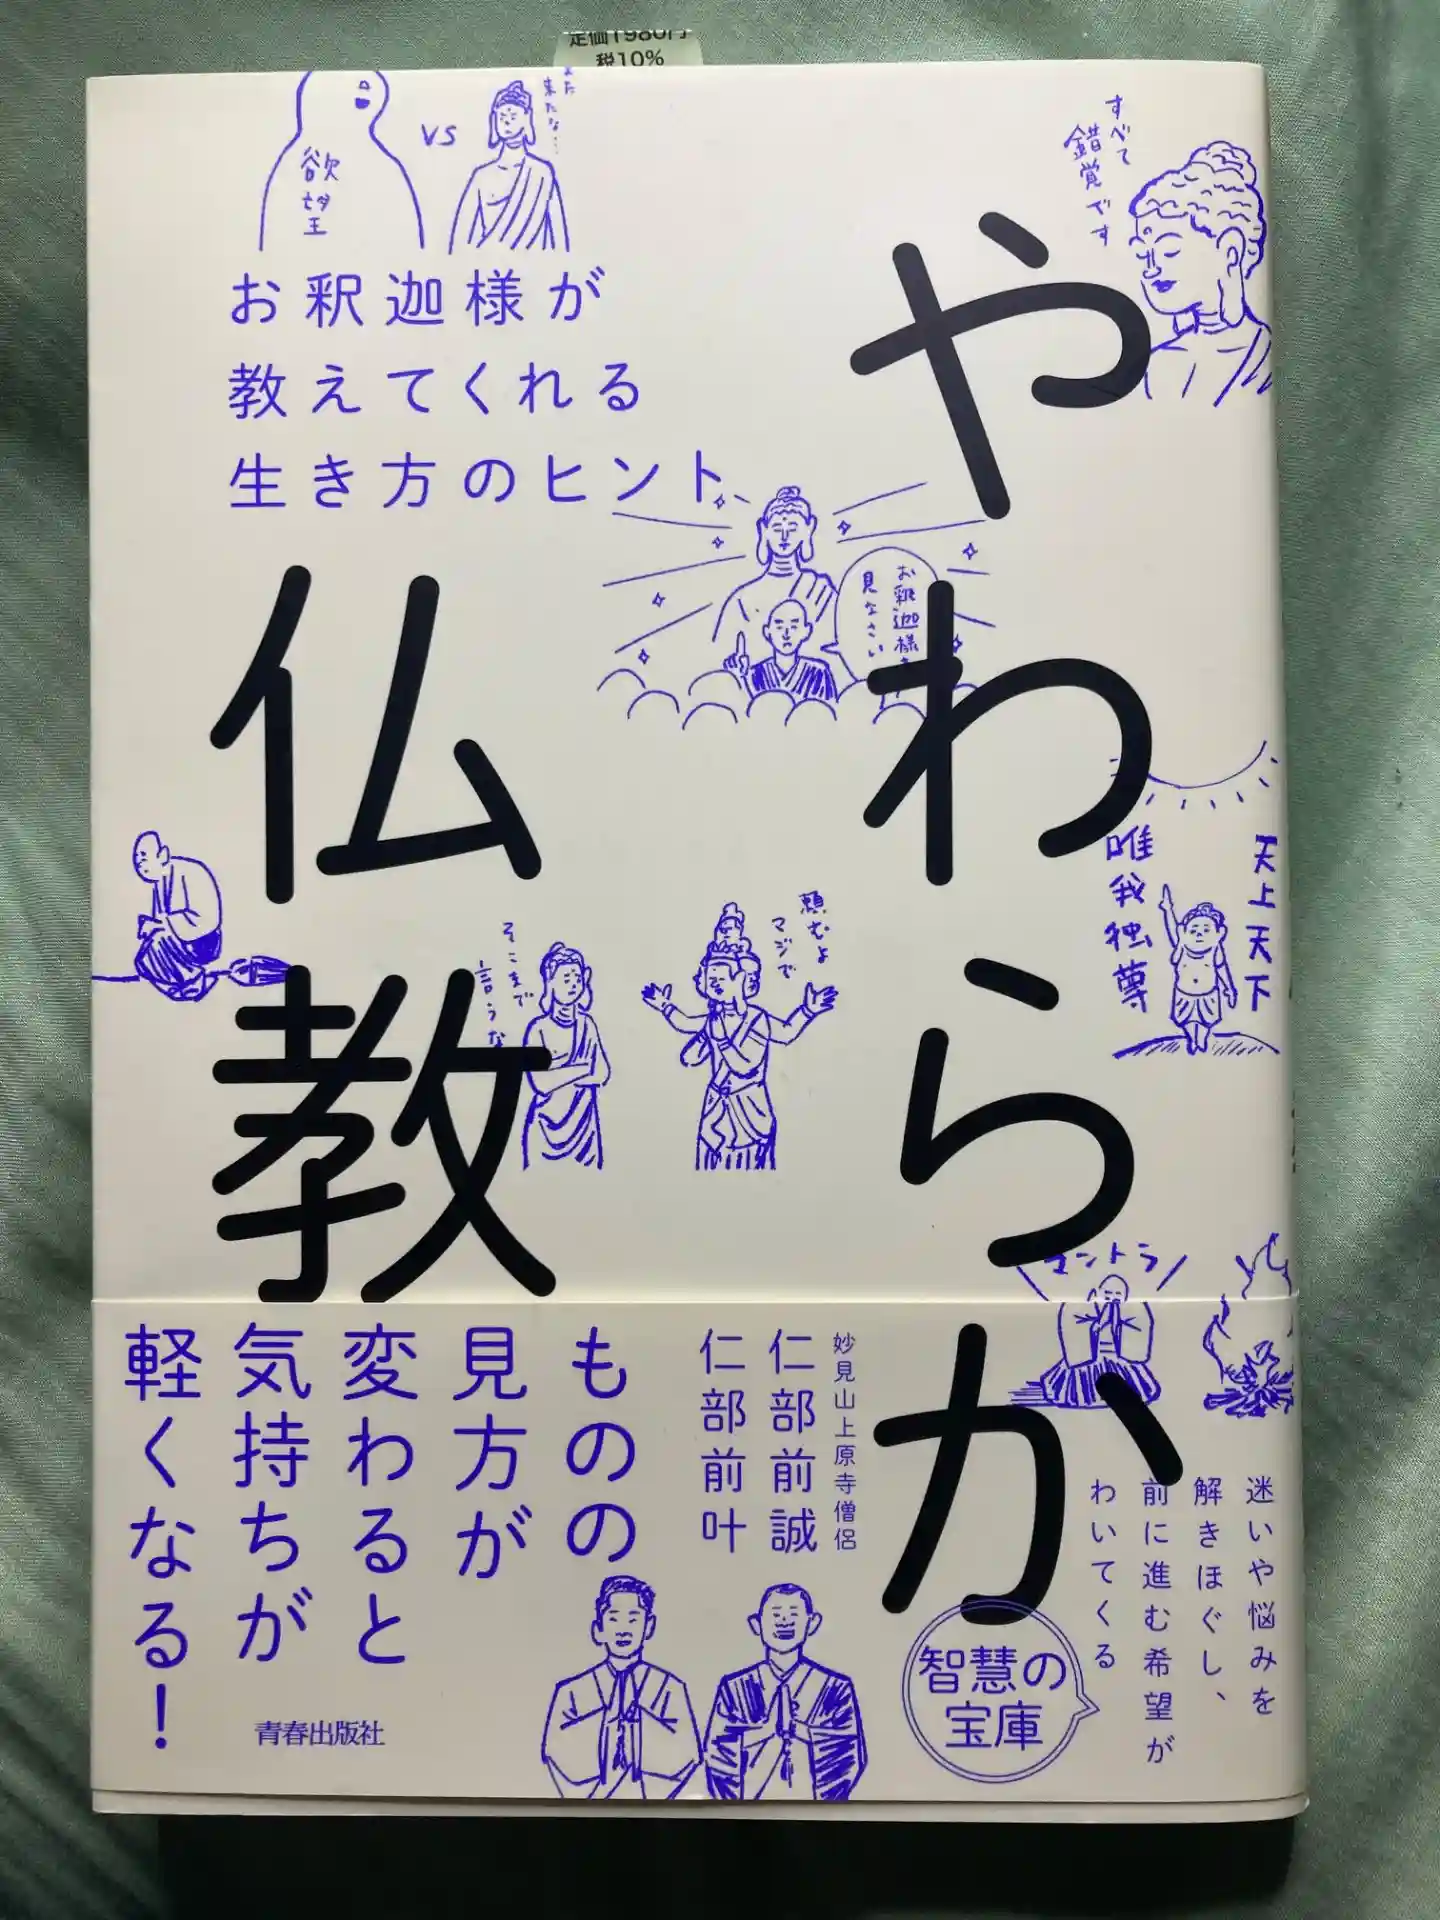 定価1980円
税10%
欲望
vs
また
来たな…
すべて
錯覚です
お釈迦様が
教えてくれる
生き方のヒント
やわらか
仏教
お釈迦様を
見なさい
天上天下
唯我独尊
頼むよ
マジで
そこまで
言うな
マントラ
迷いや悩みを
解きほぐし、
前に進む希望が
わいてくる
智慧の
宝庫
妙見山上原寺僧侶
仁部前誠
仁部前叶
ものの
見方が
変わると
気持ちが
軽くなる!
青春出版社